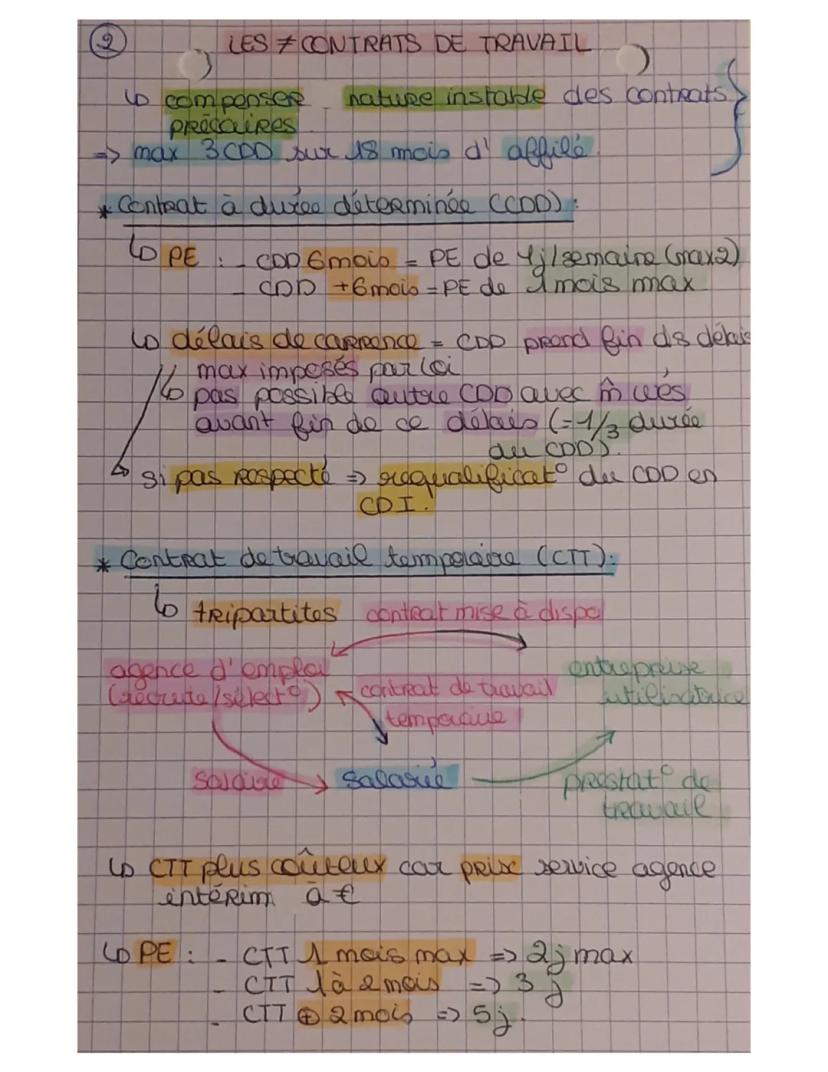 2
LES ≠ CONTRATS DE TRAVAIL
↳ compenser nature instable des contrats
précaires
=> max 3 CDD sur 18 mois d'affilé.
* Contrat à durée déterminée (CDD) :
↳ PE : - CDD 6mois = PE de 1j/semaine (max2)
- CDD +6mois = PE de 1mois max
↳ délais de carrence = CDD prend fin ds délais
max imposés par loi
↳ pas possible autre CDD avec m̂
avant fin de ce délais (=1/3 durée
du CDD).
↳ si pas respecté => requalificat° du CDD en
CDI.
* Contrat de travail temporaire (CTT) :
↳ tripartites contrat mise à dispo
agence d'emploi entreprise
(recrute/sélect°) contrat de travail utilisatrice
temporaire
salaire salarié prestat° de
travail
↳ CTT plus coûteux car prix service agence
intérim à €
↳ PE : - CTT 1 mois max => 2j max
- CTT 1 à 2 mois => 3 j
- CTT ⊕ 2 mois => 5j.